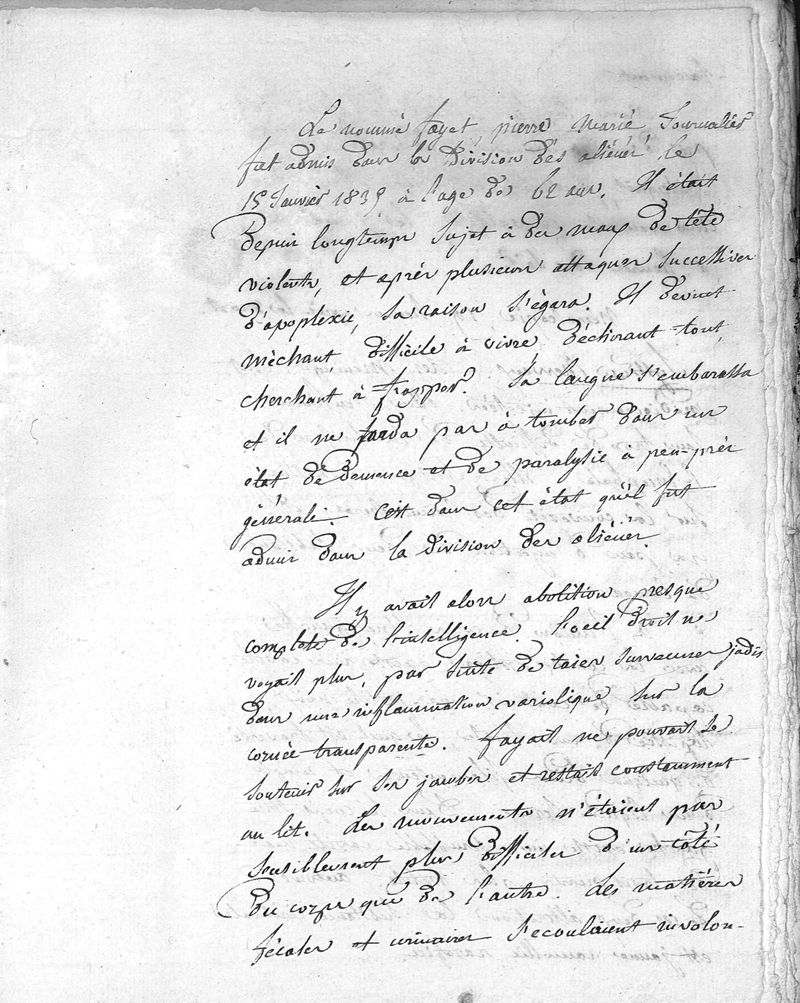 Le nommé fayet, pierre marie, Journalier
fut admis dans la division des aliénés, le
15 Janvier 1835 à l'age de 62 ans. Il était
depuis longtemps sujet à des maux de tête
violents, et après plusieurs attaques successives
d'apoplexie, sa raison s'égara. Il devint
méchant, difficile à vivre, déchirant tout,
cherchant à frapper. Sa langue s'embarassa
et il ne tarda pas à tomber dans un
état de demence et de paralysie à peu-près
générale. C'est dans cet état qu'il fut
admis dans la division des aliénés.
Il y avait alors abolition presque
complete de l'intelligence. L'oeil droit ne
voyait plus, par suite de taies survenues jadis
dans une inflammation variolique, sur la
cornée transparente. fayait ne pouvait se
soutenir sur ses jambes et restait constamment
au lit. Les mouvements n'étaient pas
sensiblement plus difficiles d'un côté
du corps que de l'autre. Les matières
fécales et urinaires s'ecoulaient involon-